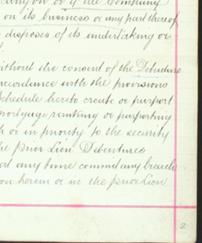 carry on or if the Company
on its business or any part thereof
disposes of its undertaking or
without the consent of the Debenture
accordance with the provisions
Schedule hereto create or purport
mortgage ranking or purporting
or in priority to the security
the Prior Lien Debentures
any time commit any breach
herein or in the Prior Lien
2